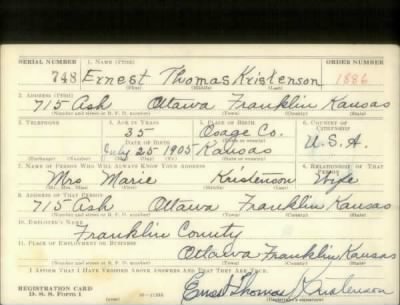 SERIAL NUMBER 1. NAME (Print) ORDER NUMBER
748 Ernest Thomas Kristenson 1886
(First) (Middle) (Last)
2. ADDRESS (Print)
715 Ash Ottawa Franklin Kansas
(Number and street or R. F. D. number) (Town) (County) (State)
3. TELEPHONE 4. AGE IN YEARS 5. PLACE OF BIRTH 6. COUNTRY OF CITIZENSHIP
35 Osage Co. U.S.A.
DATE OF BIRTH
July 25 - 1905 Kansas
(Exchange) (Number) (Mo.) (Day) (Yr.) (State or country)
7. NAME OF PERSON WHO WILL ALWAYS KNOW YOUR ADDRESS 8. RELATIONSHIP OF THAT PERSON
Mrs Marie Kristenson Wife
(Mr., Mrs., Miss) (First) (Middle) (Last)
9. ADDRESS OF THAT PERSON
715 Ash Ottawa Franklin Kansas
(Number and street or R. F. D. number) (Town) (County) (State)
10. EMPLOYER'S NAME
Franklin County
11. PLACE OF EMPLOYMENT OR BUSINESS
Ottawa Franklin Kansas
(Number and street or R. F. D. number) (Town) (County) (State)
I AFFIRM THAT I HAVE VERIFIED ABOVE ANSWERS AND THAT THEY ARE TRUE.
REGISTRATION CARD
D. S. S. FORM 1
Ernest Thomas Kristenson
(Registrant's signature)